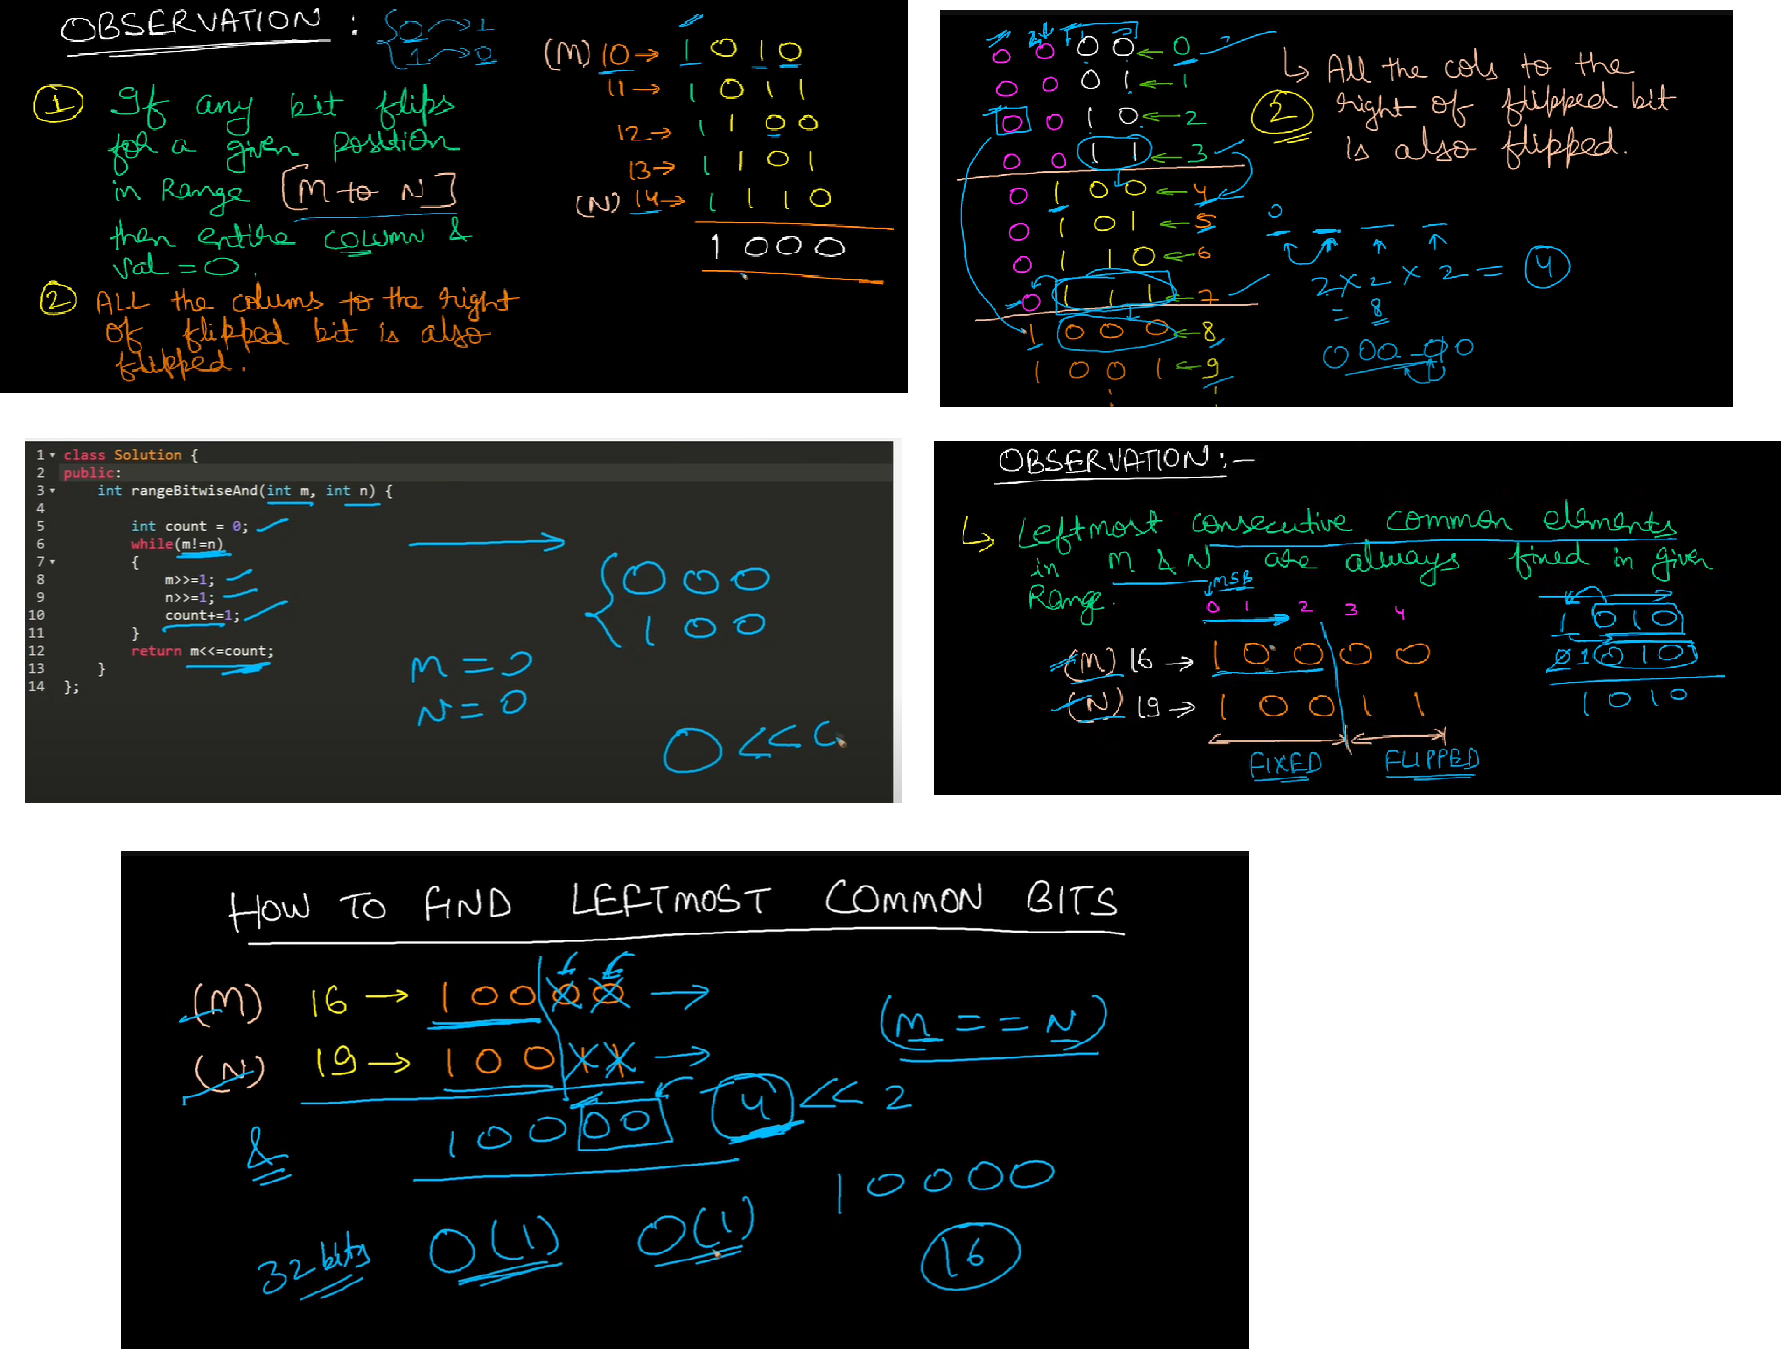 OBSERVATION : 0 → 1
1 → 0
① If any bit flips
for a given position
in Range [M to N]
then entire column &
val = 0.
② ALL the colums to the right
of flipped bit is also
flipped.
(M) 10 → 1 0 1 0
11 → 1 0 1 1
12 → 1 1 0 0
13 → 1 1 0 1
(N) 14 → 1 1 1 0
1 0 0 0
0 0 0 0 ← 0
0 0 0 1 ← 1
0 0 1 0 ← 2
0 0 1 1 ← 3
0 1 0 0 ← 4
0 1 0 1 ← 5
0 1 1 0 ← 6
0 1 1 1 ← 7
1 0 0 0 ← 8
1 0 0 1 ← 9
↳ All the cols to the
② right of flipped bit
is also flipped.
0
2 × 2 × 2 = 4
= 8
1 class Solution {
2 public:
3 int rangeBitwiseAnd(int m, int n) {
4
5 int count = 0;
6 while(m!=n)
7 {
8 m>>=1;
9 n>>=1;
10 count+=1;
11 }
12 return m<<=count;
13 }
14 };
0 0 0
1 0 0
M = 0
N = 0
0 <<
OBSERVATION :-
↳ Leftmost consecutive common elements
in M & N are always fixed in given
Range.
MSB
0 1 2 3 4
(M) 16 → 1 0 0 0 0
(N) 19 → 1 0 0 1 1
FIXED FLIPPED
1 0 1 0
0 1 0 1 0
1 0 1 0
HOW TO FIND LEFTMOST COMMON BITS
(M) 16 → 1 0 0 0 0 →
(N) 19 → 1 0 0 →
(M == N)
& 1 0 0 0 0
4 << 2
1 0 0 0 0
16
32 bits O(1) O(1)